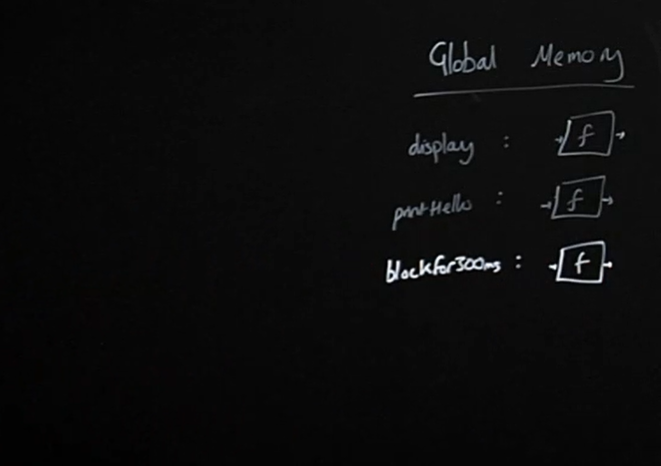 Global Memory
display : f
printHello : f
blockfor300ms : f